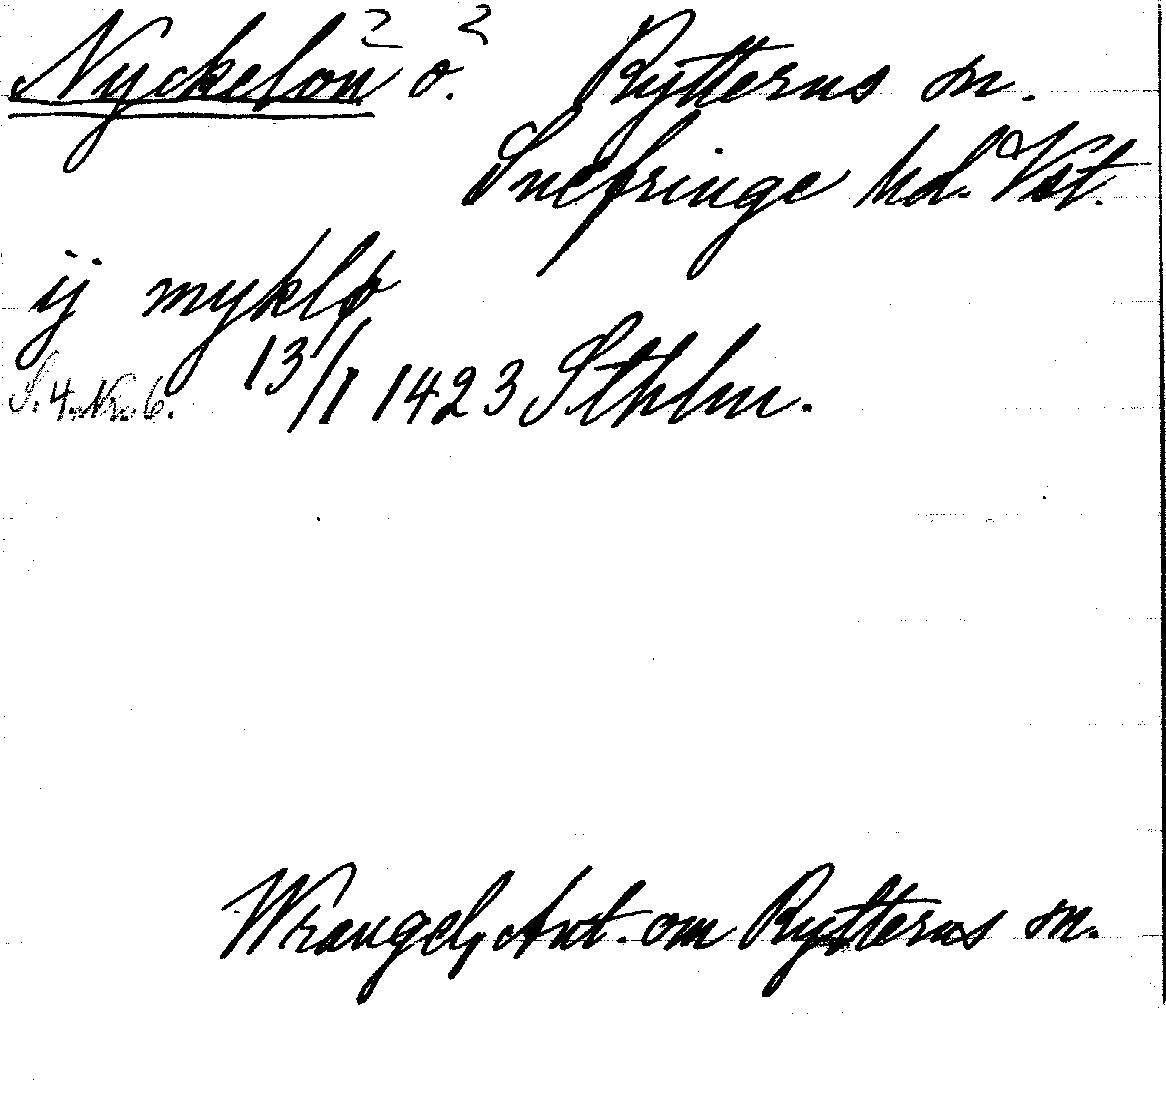 Nyckelön ö. Rytterns sn.
Snefringe hd. Vst.
ij myklø
S. 4. Nr. 6. 13/1 1423 Sthlm.
Wrangel, Ant. om Rytterns sn.